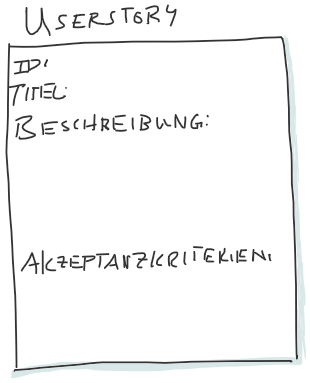 USERSTORY
ID:
TITEL:
BESCHREIBUNG:
AKZEPTANZKRITERIEN: